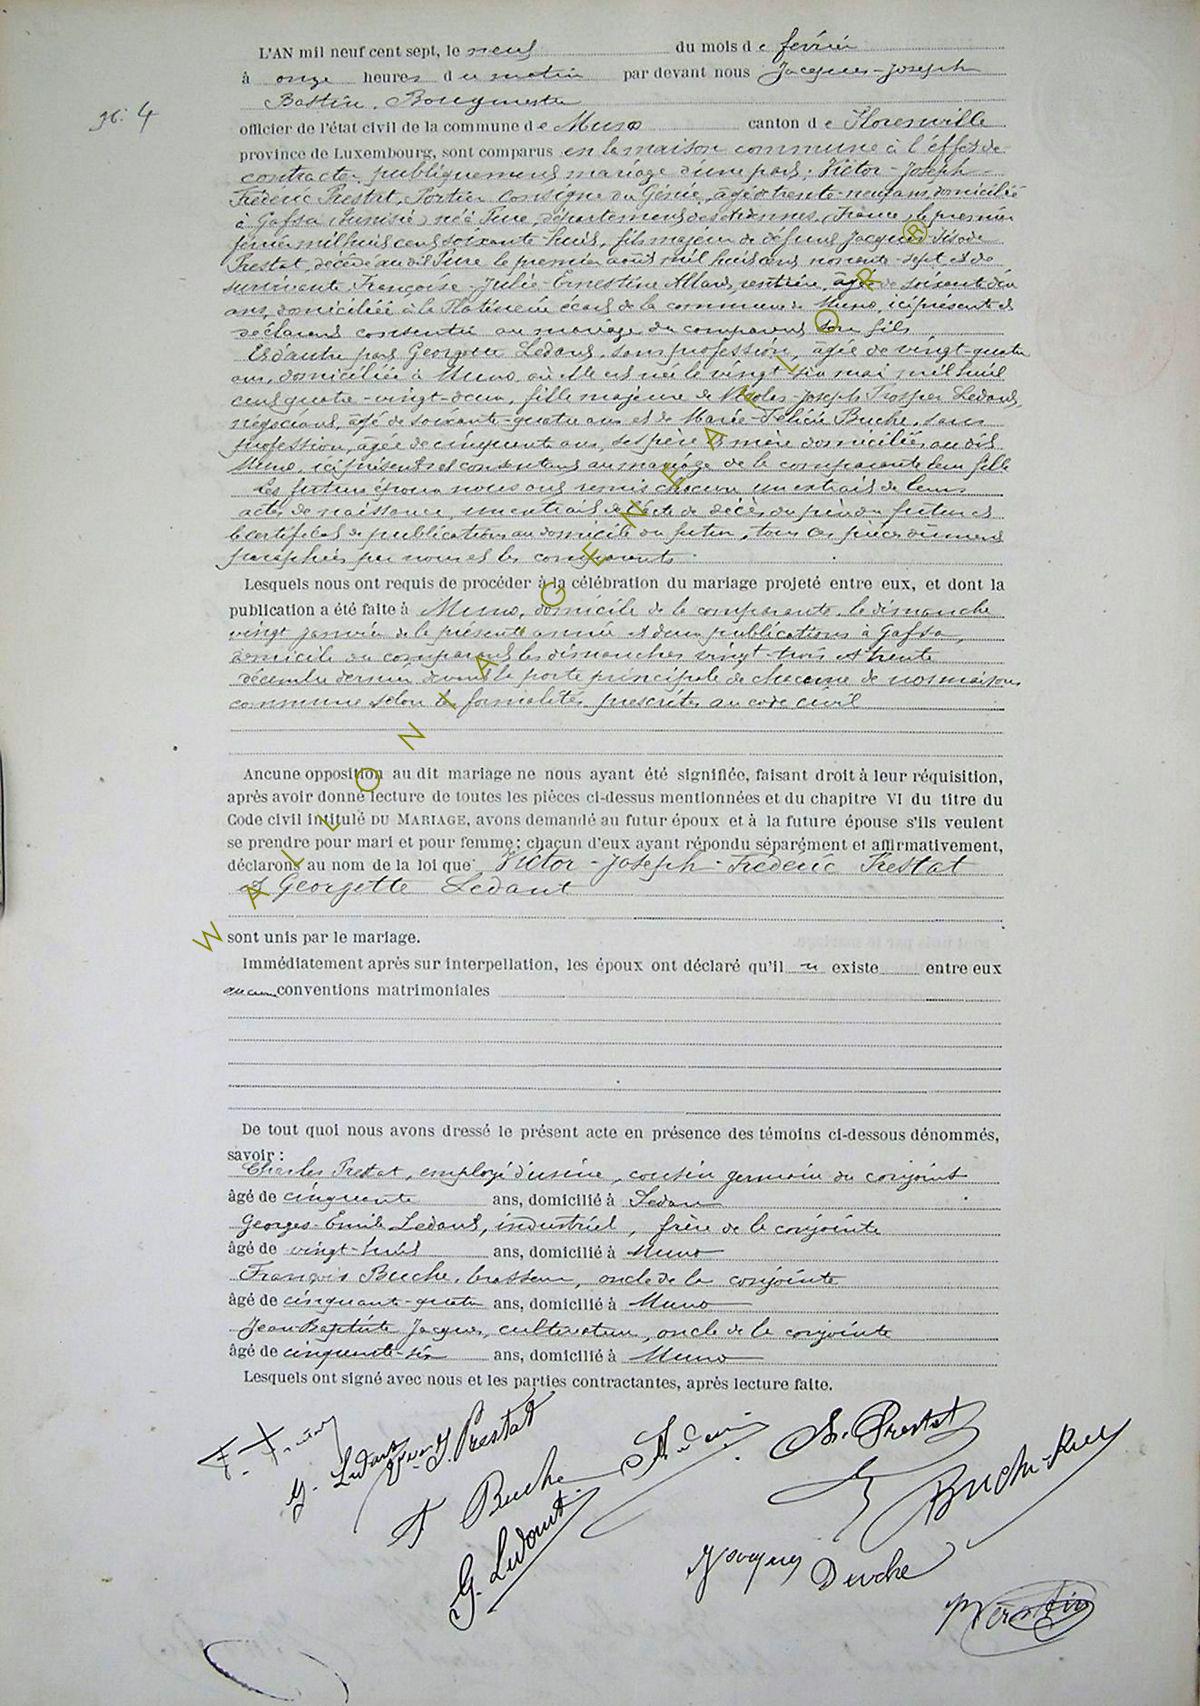 L'AN mil neuf cent sept, le neuf du mois de février
à onze heures du matin par devant nous Jacques-Joseph
Bastin, Bourgmestre
N° 4
officier de l'état civil de la commune de Muno canton de Florenville
province de Luxembourg, sont comparus en la maison commune à l'effet de
contracter publiquement mariage d'une part: Victor-Joseph
Frédéric Prestat, Portier Consigne du Génie, âgé de trente-neuf ans, domicilié
à Gafsa (Tunisie) né à Pure, département des Ardennes, (France) le premier
février mil huit cent soixante-huit, fils majeur de défunt Jacques
Prestat, décédé au dit Pure le premier août mil huit cent nonante-sept et de
survivante Françoise-Julie-Ernestine Allard, rentière, âgée de soixante-dix
ans, domiciliée à la Platinerie écart de la commune de Muno, ici présente et
déclarant consentir au mariage du comparant son fils
Et d'autre part Georgette Ledant, sans profession, âgée de vingt-quatre
ans, domiciliée à Muno, où elle est née le vingt-six mai mil huit
cent quatre-vingt-deux, fille majeure de Nicolas-Joseph Prosper Ledant,
négociant, âgé de soixante-quatre ans et de Marie-Félicie Buche, sans
profession, âgée de cinquante ans, ses père & mère domiciliés au dit
Muno, ici présents et consentant au mariage de la comparante leur fille
Les futurs époux nous ont remis chacun un extrait de leurs
acte de naissance, un extrait de l'acte de décès du père du futur et
le certificat de publication au domicile du futur, tous ces pièces dûment
paraphées par nous et les comparants.
Lesquels nous ont requis de procéder à la célébration du mariage projeté entre eux, et dont la
publication a été faite à Muno, domicile de la comparante, le dimanche
vingt janvier de la présente année et deux publications à Gafsa,
domicile du comparant les dimanches vingt-trois et trente
décembre dernier devant la porte principale de chacune de nos maisons
commune selon les formalités prescrites au code civil
Ancune opposition au dit mariage ne nous ayant été signifiée, faisant droit à leur réquisition,
après avoir donné lecture de toutes les pièces ci-dessus mentionnées et du chapitre VI du titre du
Code civil intitulé DU MARIAGE, avons demandé au futur époux et à la future épouse s'ils veulent
se prendre pour mari et pour femme; chacun d'eux ayant répondu séparément et affirmativement,
déclarons au nom de la loi que Victor-Joseph-Frédéric Prestat
et Georgette Ledant
sont unis par le mariage.
Immédiatement après sur interpellation, les époux ont déclaré qu'il n existe entre eux
aucune conventions matrimoniales
De tout quoi nous avons dressé le présent acte en présence des témoins ci-dessous dénommés,
savoir :
Charles Prestat, employé d'usine, cousin germain du conjoint
âgé de cinquante ans, domicilié à Sedan
Georges-Emile Ledant, industriel, frère de la conjointe
âgé de vingt-huit ans, domicilié à Muno
François Buche, brasseur, oncle de la conjointe
âgé de cinquante-quatre ans, domicilié à Muno
Jean-Baptiste Jacques, cultivateur, oncle de la conjointe
âgé de cinquante-six ans, domicilié à Muno
Lesquels ont signé avec nous et les parties contractantes, après lecture faite.
G. Ledant
Prestat
Prestat
F Buche
Buche
G. Ledant
Jacques Buche
WALLONIA GENEAFLOR®